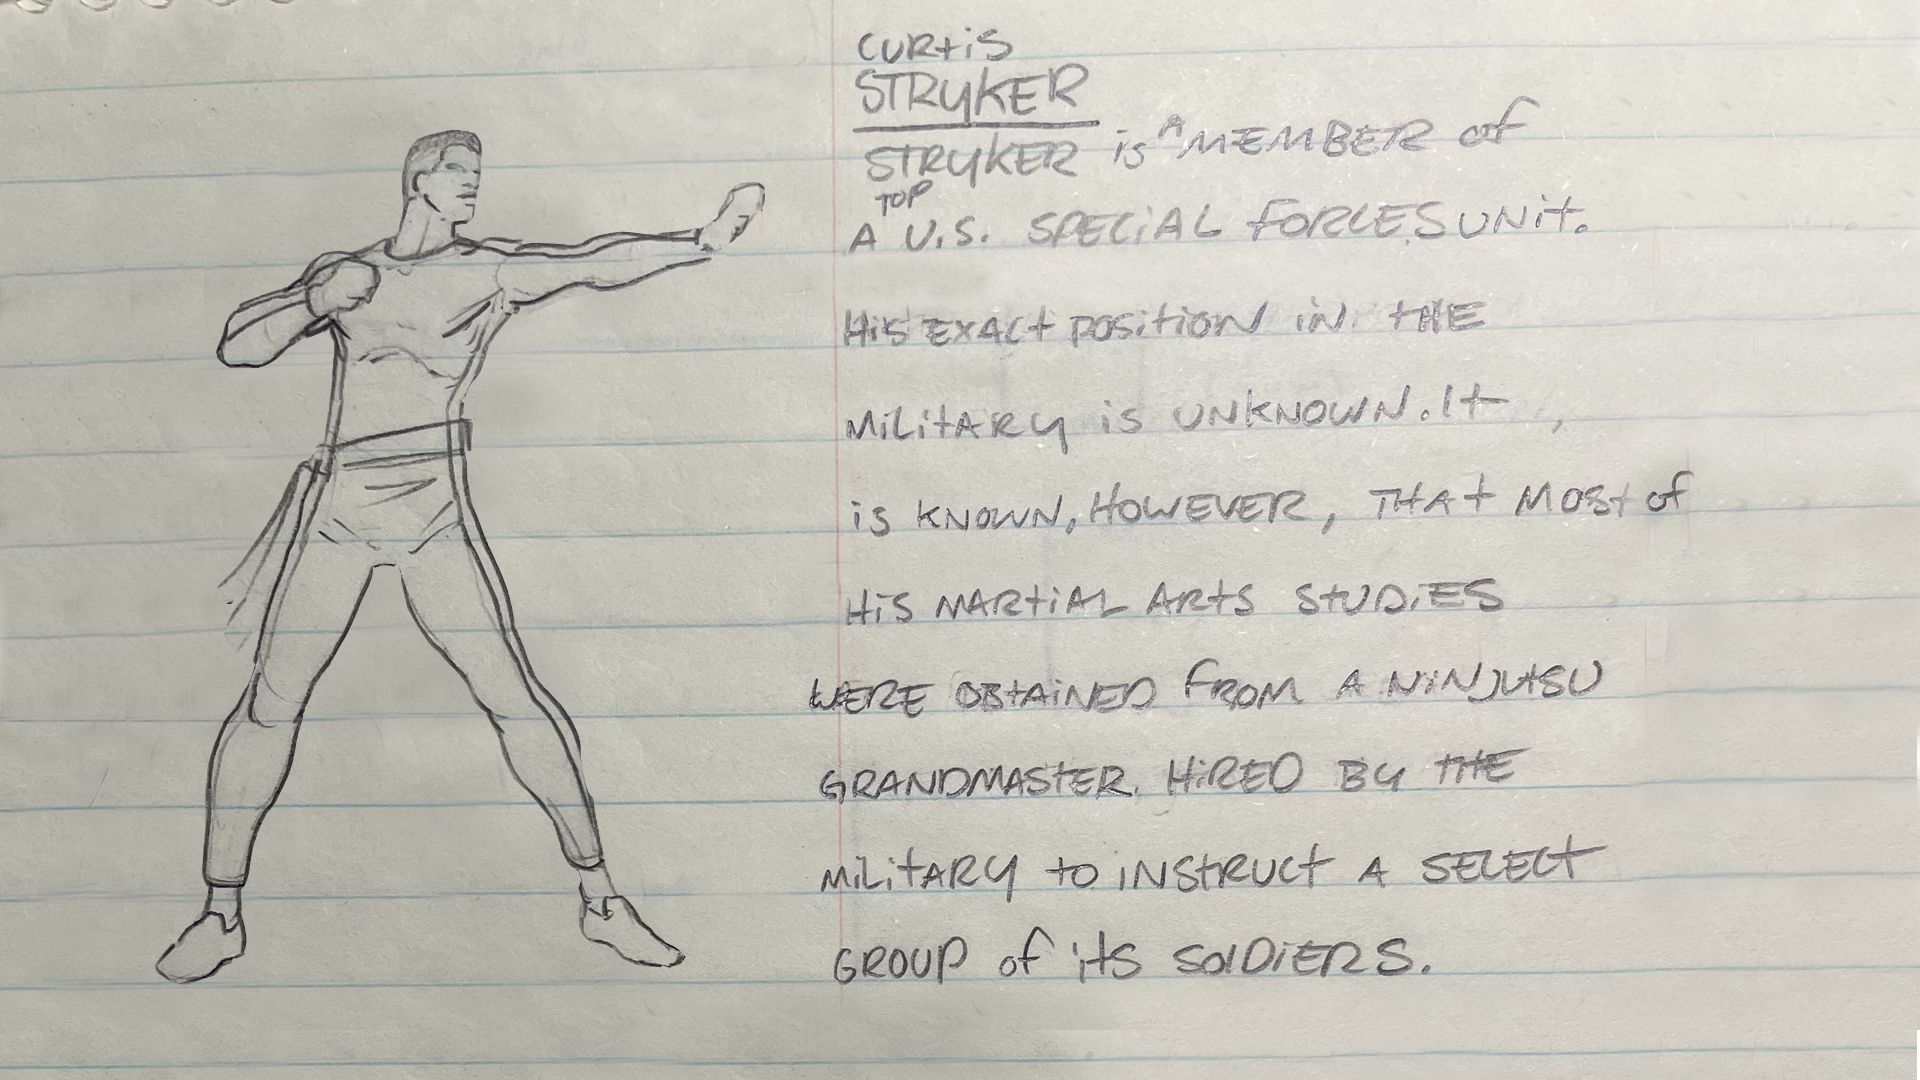 CURtiS
STRYKER
STRYKER is A MEMBER of
A TOP U.S. SPECiAL FORCES UNit.
HiS EXACt POSitiON iN tHE
MiLitARY iS UNKNOWN. It
iS KNOWN, HOWEVER, THAt MOSt of
HiS MARtiAL ARtS StUDiES
WERE OBtAiNED FROM A NiNJUtSU
GRANDMAStER. HiRED BY tHE
MiLitARY tO iNStRUCt A SELECt
GROUP of itS SOlDiERS.